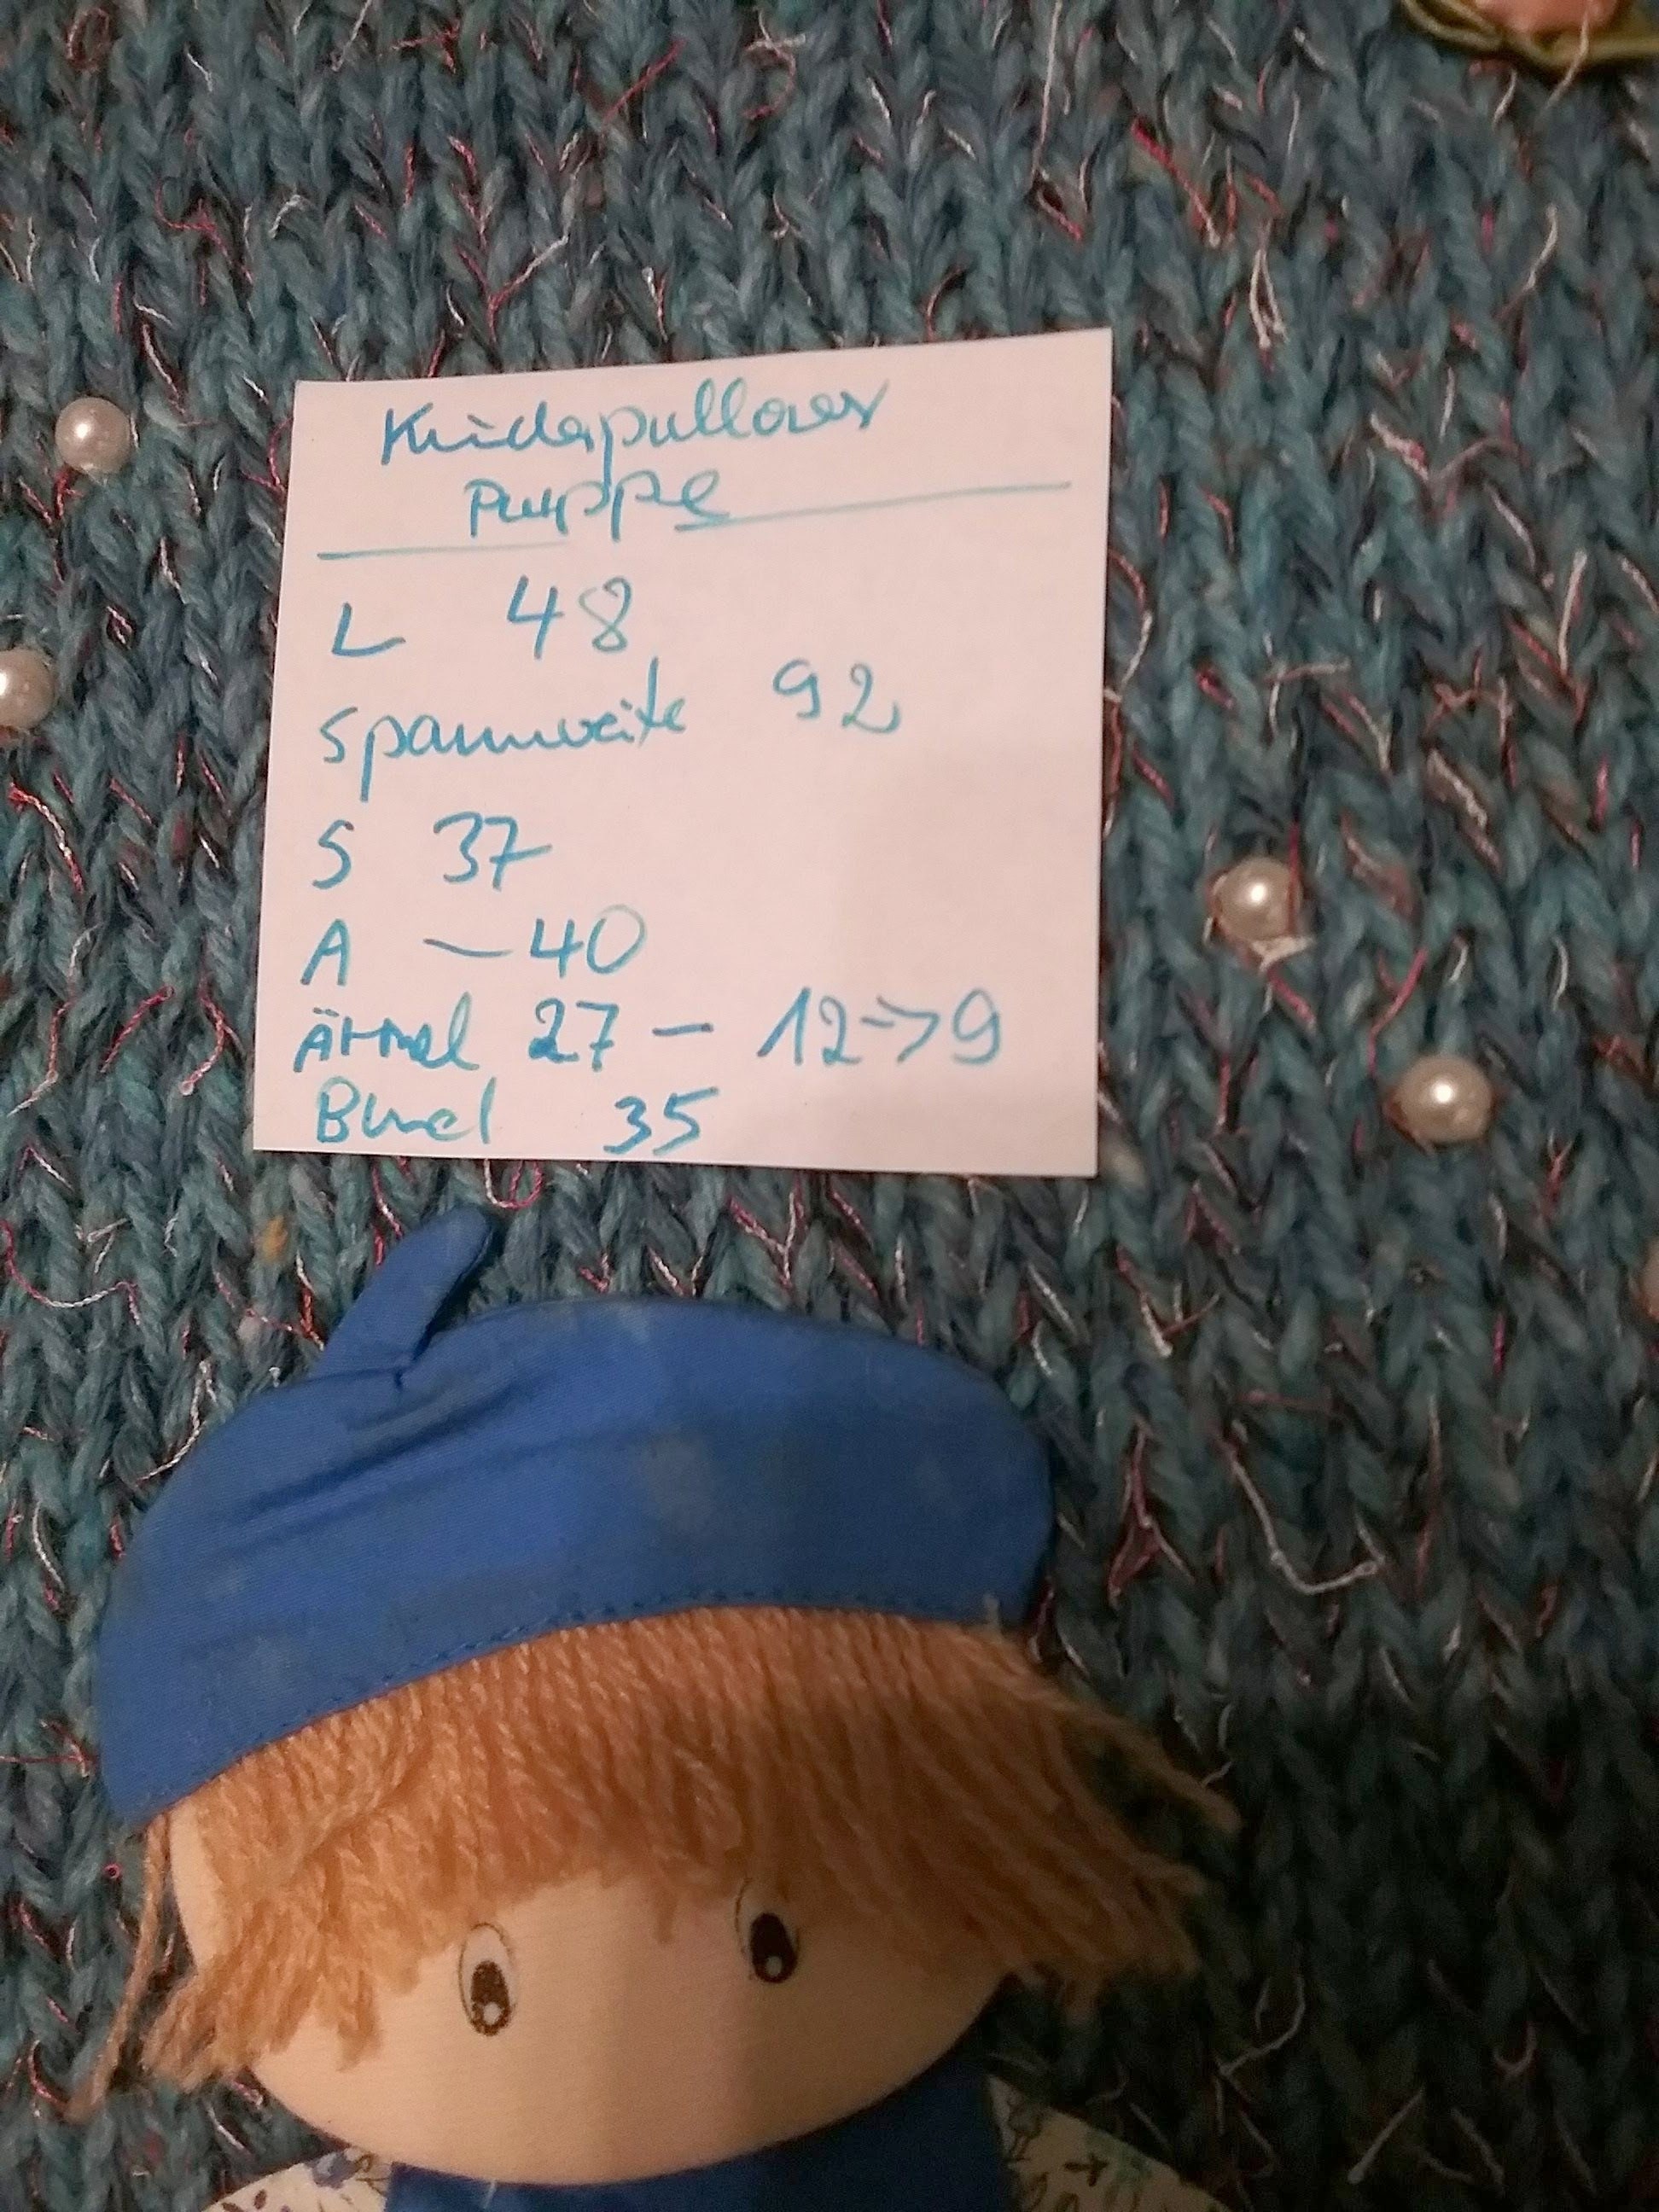 Kinderpullover
Puppe
L 48
Spannweite 92
S 37
A — 40
Ärmel 27 – 12->9
Bund 35